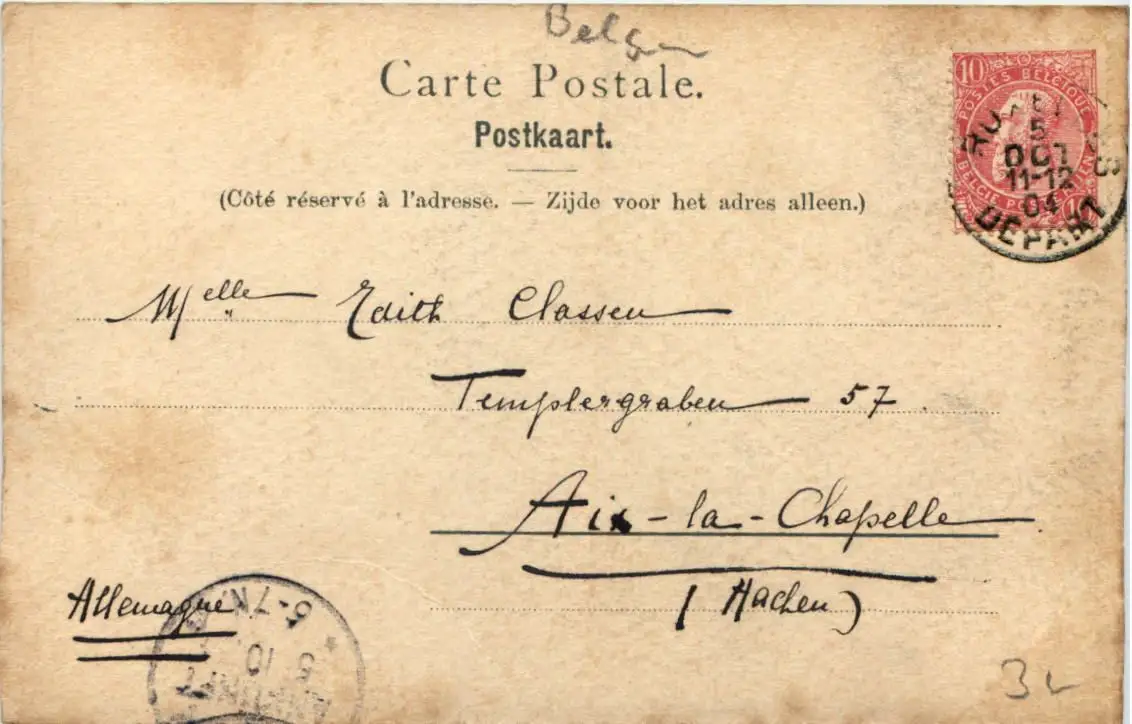 Carte Postale.
Postkaart.
(Côté réservé à l'adresse. — Zijde voor het adres alleen.)
10
POSTES BELGIQUE
5
OCT
11-12
04
DEPART
Melle Edith Classen
Templergraben 57
Aix-la-Chapelle
(Aachen)
Allemagne
6-7N.
5 10
3